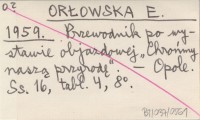 o.z
ORŁOWSKA E.
1959. Przewodnik po wy-
stawie objazdowej "Chrońmy
naszą przyrodę". — Opole.
Ss. 16, tabl. 4, 8°.